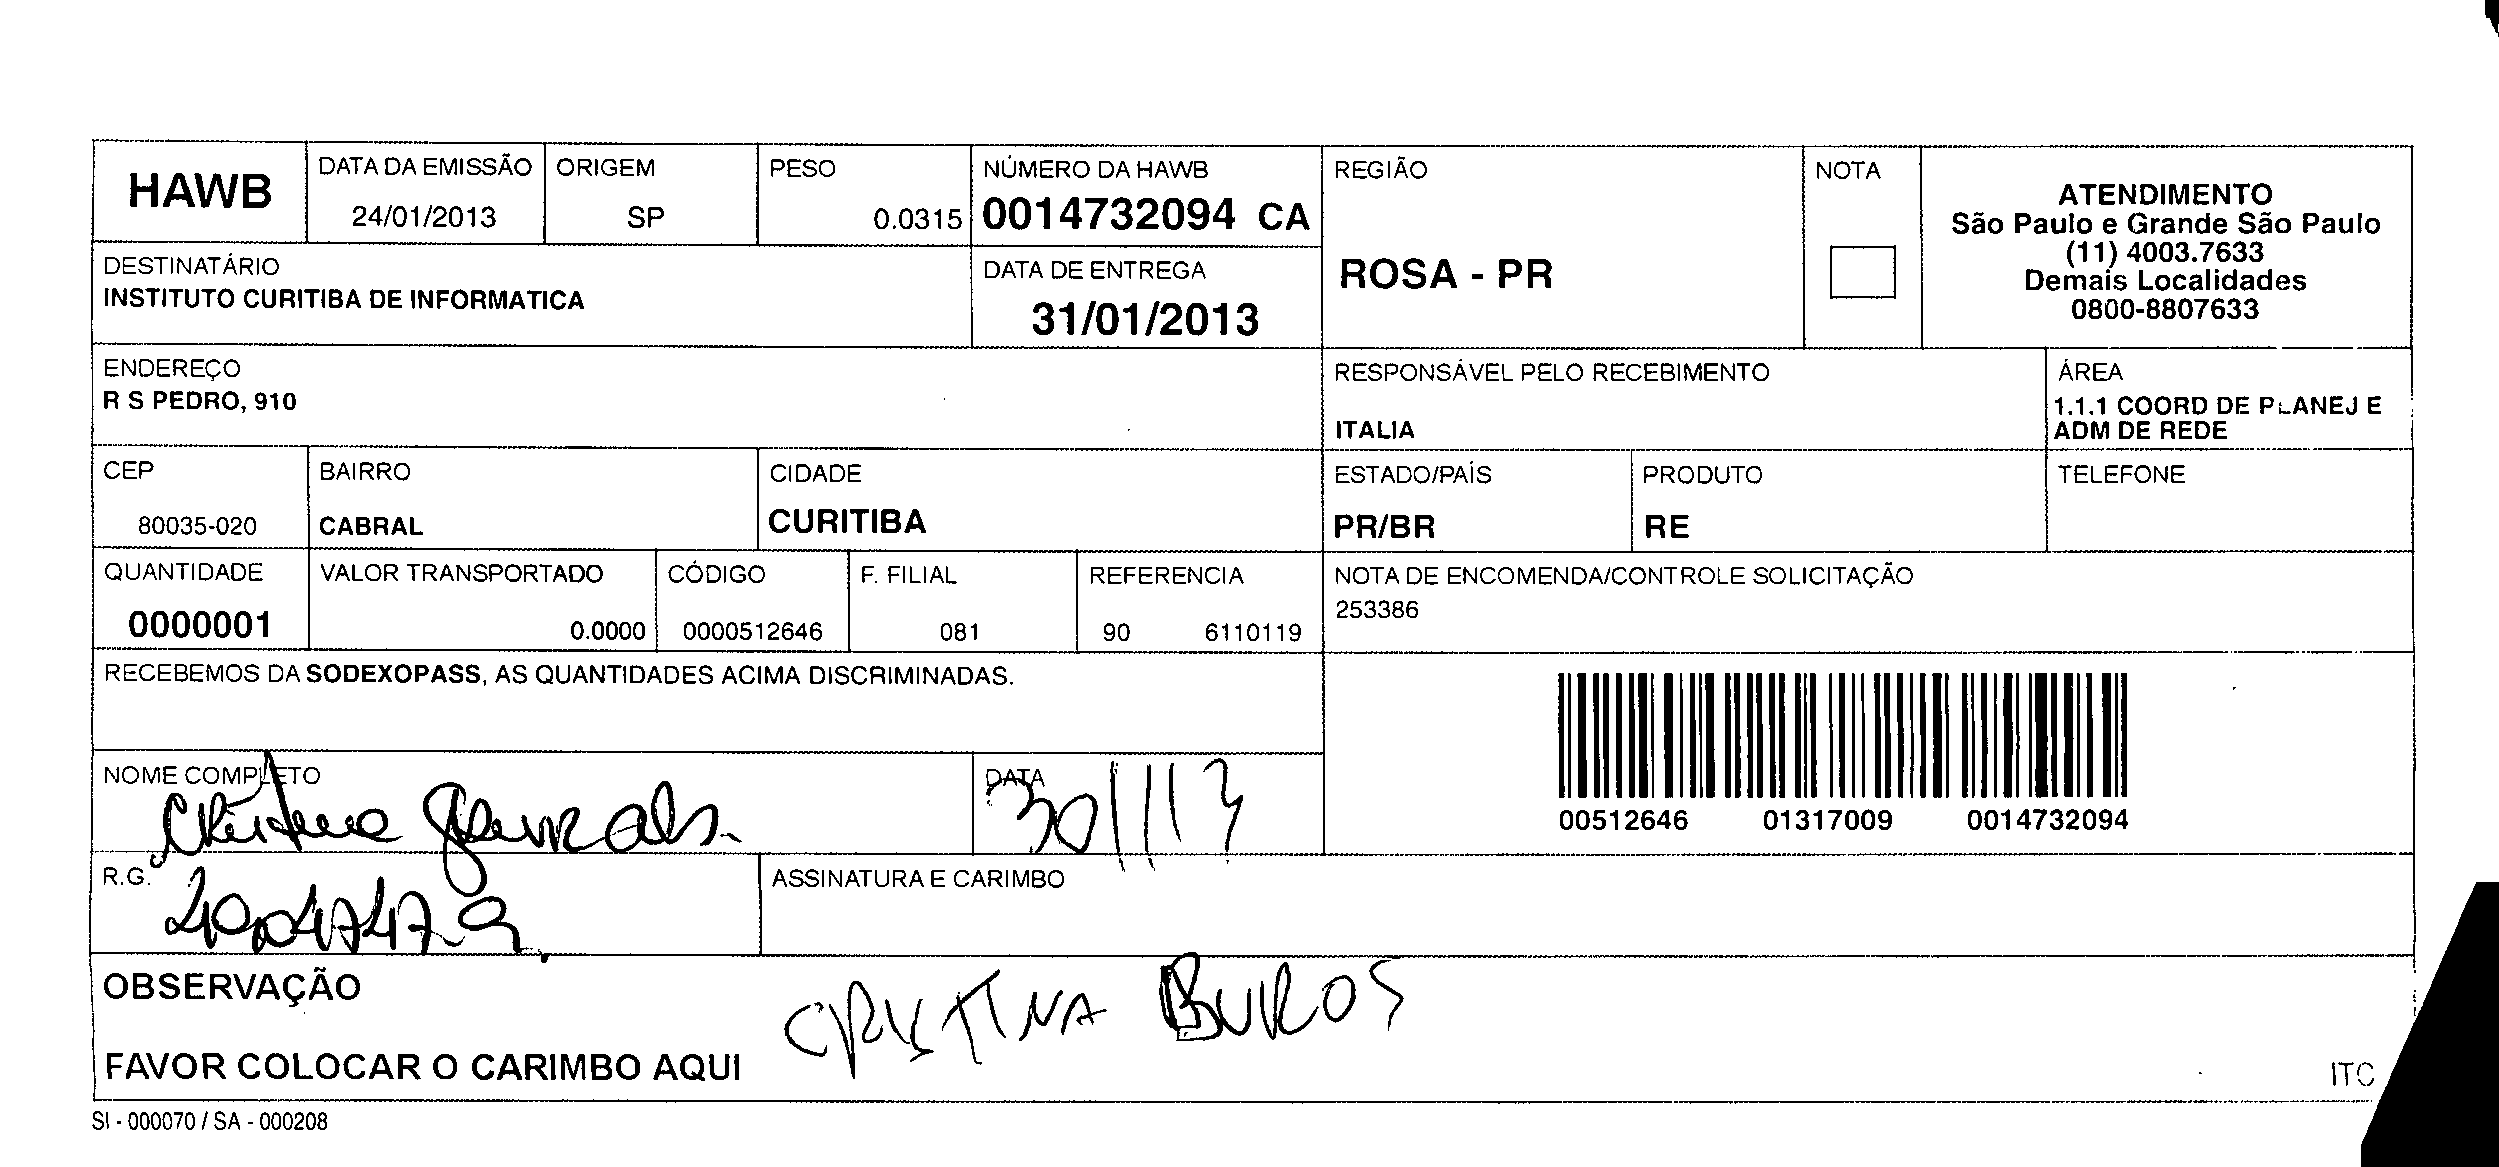 HAWB
DATA DA EMISSÃO
24/01/2013
ORIGEM
SP
PESO
0.0315
NÚMERO DA HAWB
0014732094 CA
REGIÃO
ROSA - PR
NOTA
ATENDIMENTO
São Paulo e Grande São Paulo
(11) 4003.7633
Demais Localidades
0800-8807633
DESTINATÁRIO
INSTITUTO CURITIBA DE INFORMATICA
DATA DE ENTREGA
31/01/2013
ENDEREÇO
R S PEDRO, 910
RESPONSÁVEL PELO RECEBIMENTO
ITALIA
ÁREA
1.1.1 COORD DE PLANEJ E
ADM DE REDE
CEP
80035-020
BAIRRO
CABRAL
CIDADE
CURITIBA
ESTADO/PAÍS
PR/BR
PRODUTO
RE
TELEFONE
QUANTIDADE
0000001
VALOR TRANSPORTADO
0.0000
CÓDIGO
0000512646
F. FILIAL
081
REFERENCIA
90 6110119
NOTA DE ENCOMENDA/CONTROLE SOLICITAÇÃO
253386
RECEBEMOS DA SODEXOPASS, AS QUANTIDADES ACIMA DISCRIMINADAS.
00512646 01317009 0014732094
NOME COMPLETO
DATA
30/1/13
R.G.
ASSINATURA E CARIMBO
OBSERVAÇÃO
CRISTINA
FAVOR COLOCAR O CARIMBO AQUI
ITC
SI - 000070 / SA - 000208